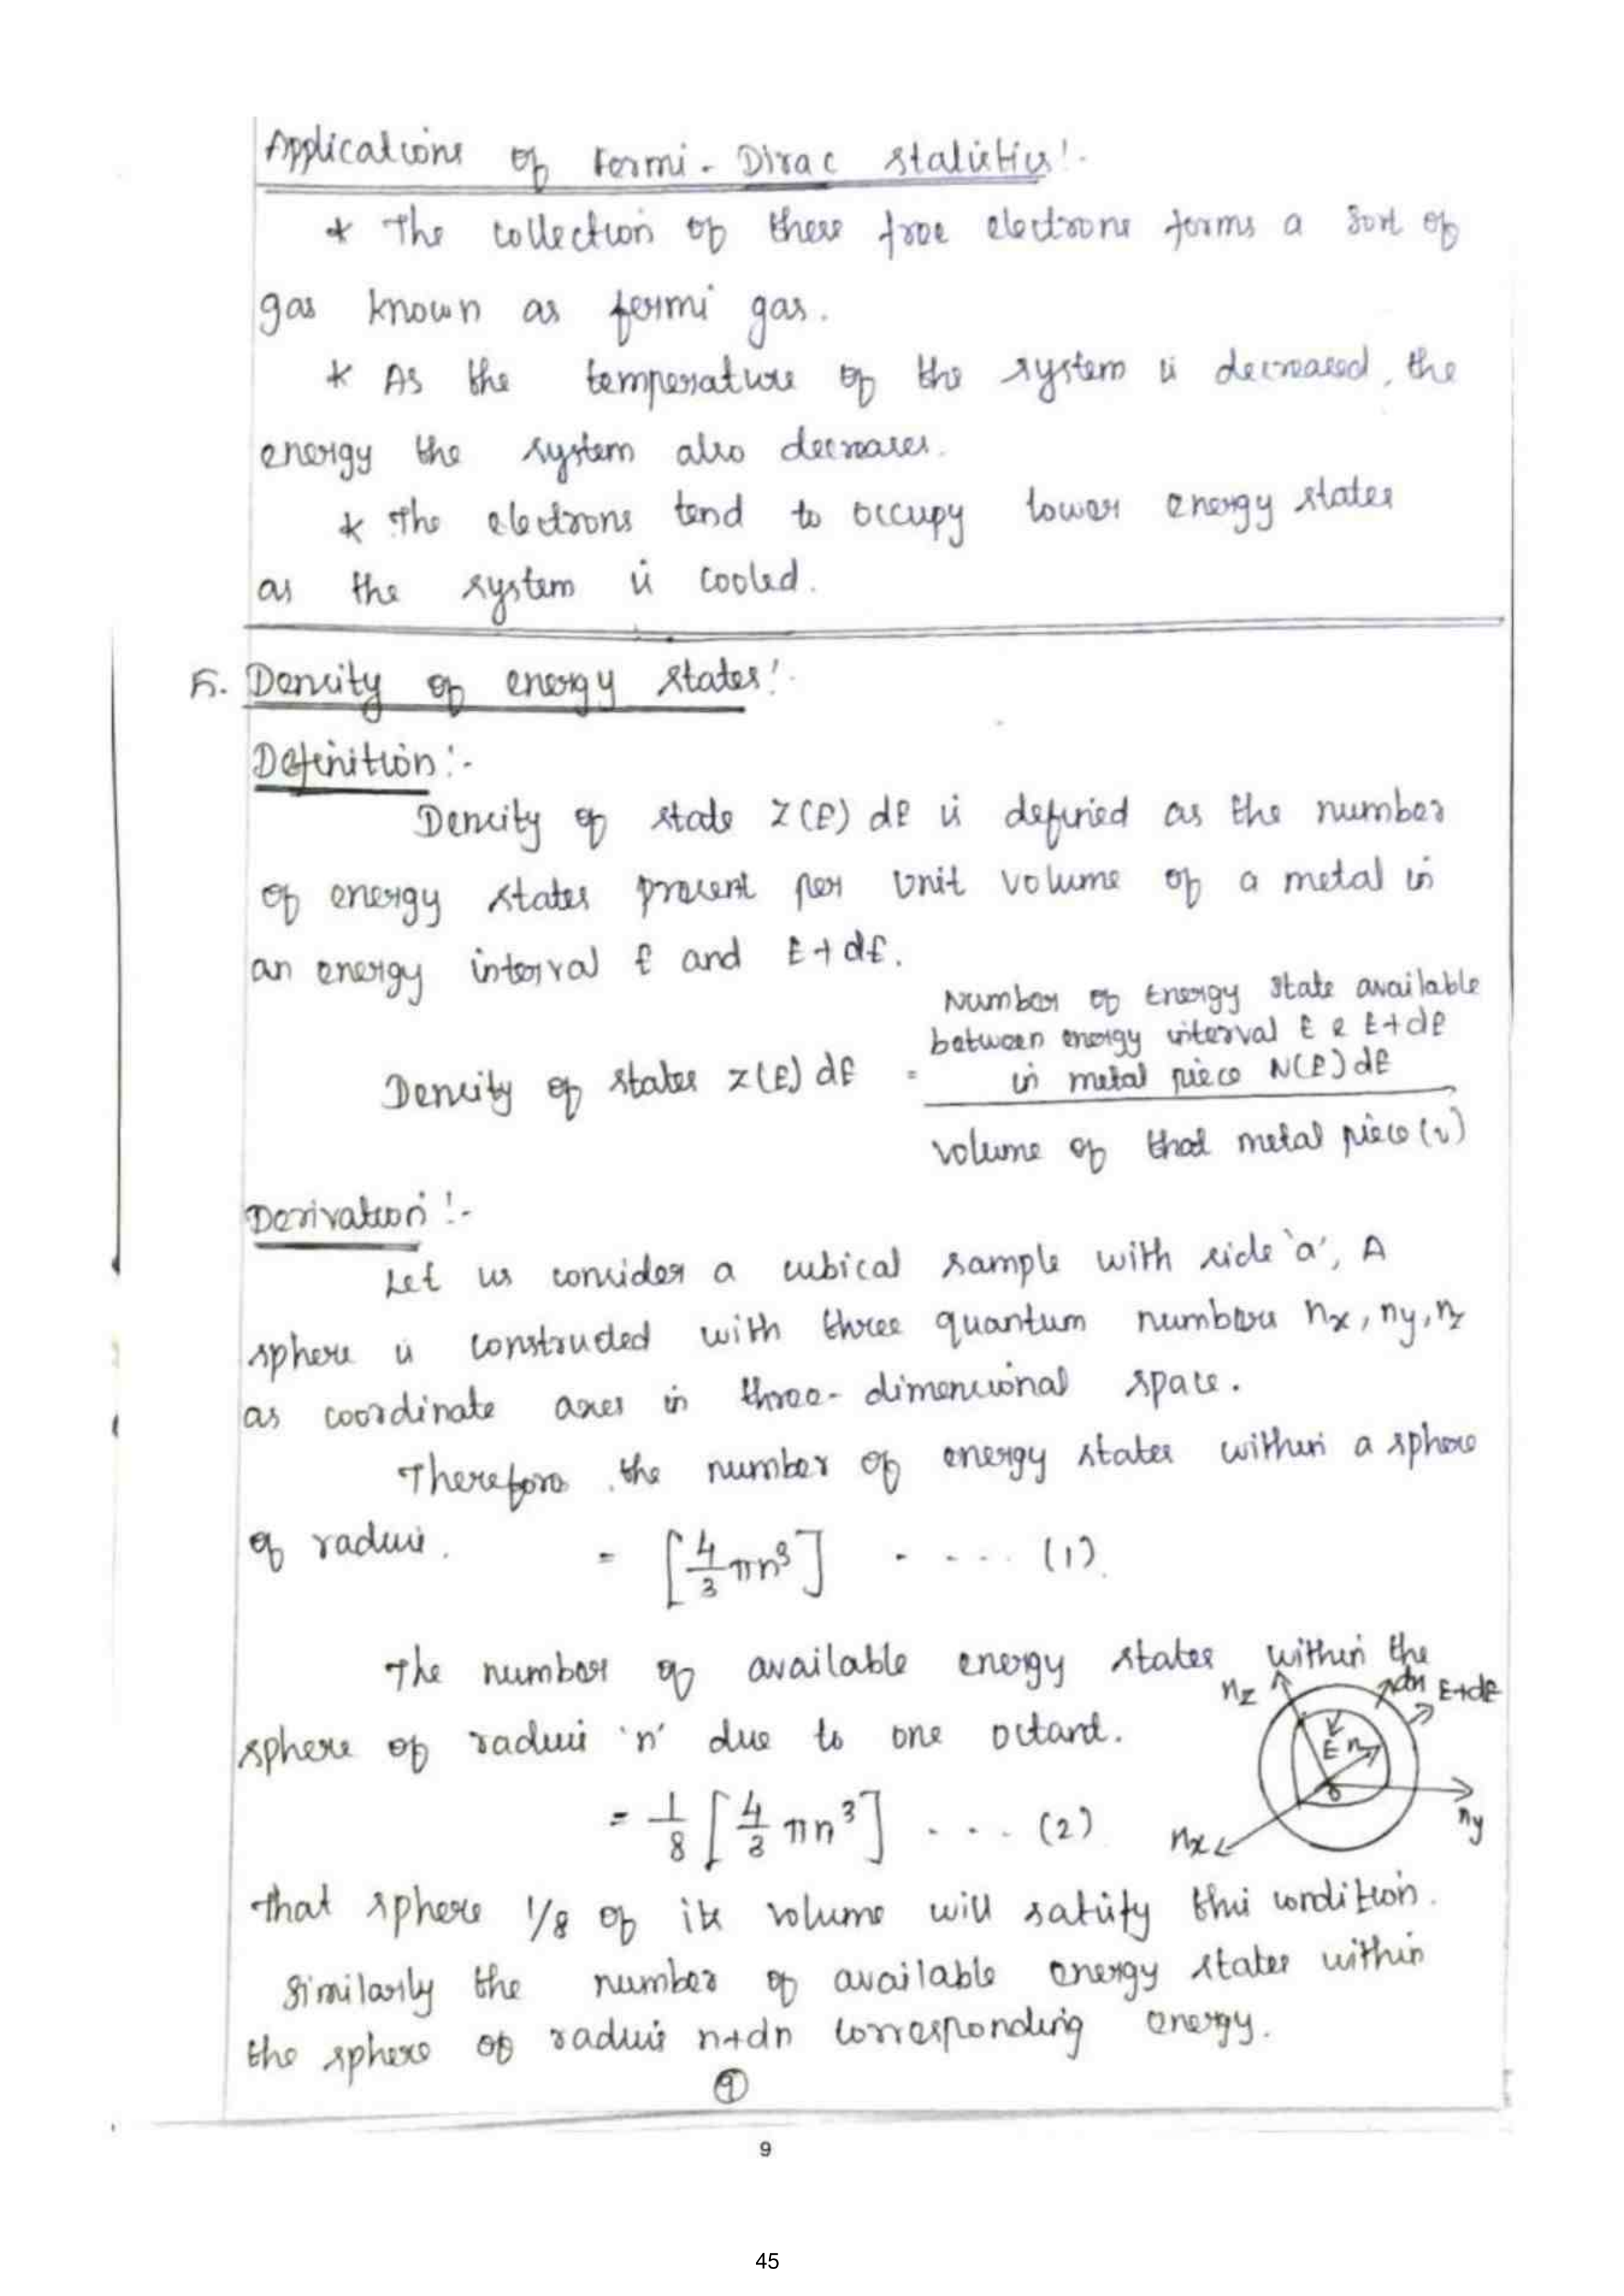 Applications of Fermi - Dirac statistics:-
* The collection of these free electrons forms a sort of
gas known as fermi gas.
* As the temperature of the system is decreased, the
energy the system also decreases.
* The electrons tend to occupy lower energy states
as the system is cooled.
5. Density of energy states:-
Definition:-
Density of state Z(E) dE is defined as the number
of energy states present per unit volume of a metal in
an energy interval E and E+dE.
Number of Energy state available
between energy interval E & E+dE
in metal piece N(E)dE
Density of states Z(E) dE =
volume of that metal piece (v)
Derivation:-
Let us consider a cubical sample with side 'a', A
sphere is constructed with three quantum numbers nx, ny, nz
as coordinate axes in three-dimensional space.
Therefore the number of energy states within a sphere
of radius. = [4/3 πn³] - - - - (1).
The number of available energy states within the
nz dn E+dE
sphere of radius 'n' due to one octant.
E n
= 1/8 [4/3 πn³] - - - (2)
nx ny
that sphere 1/8 of its volume will satisfy this condition.
Similarly the number of available energy states within
the sphere of radius n+dn corresponding energy.
9
9
45